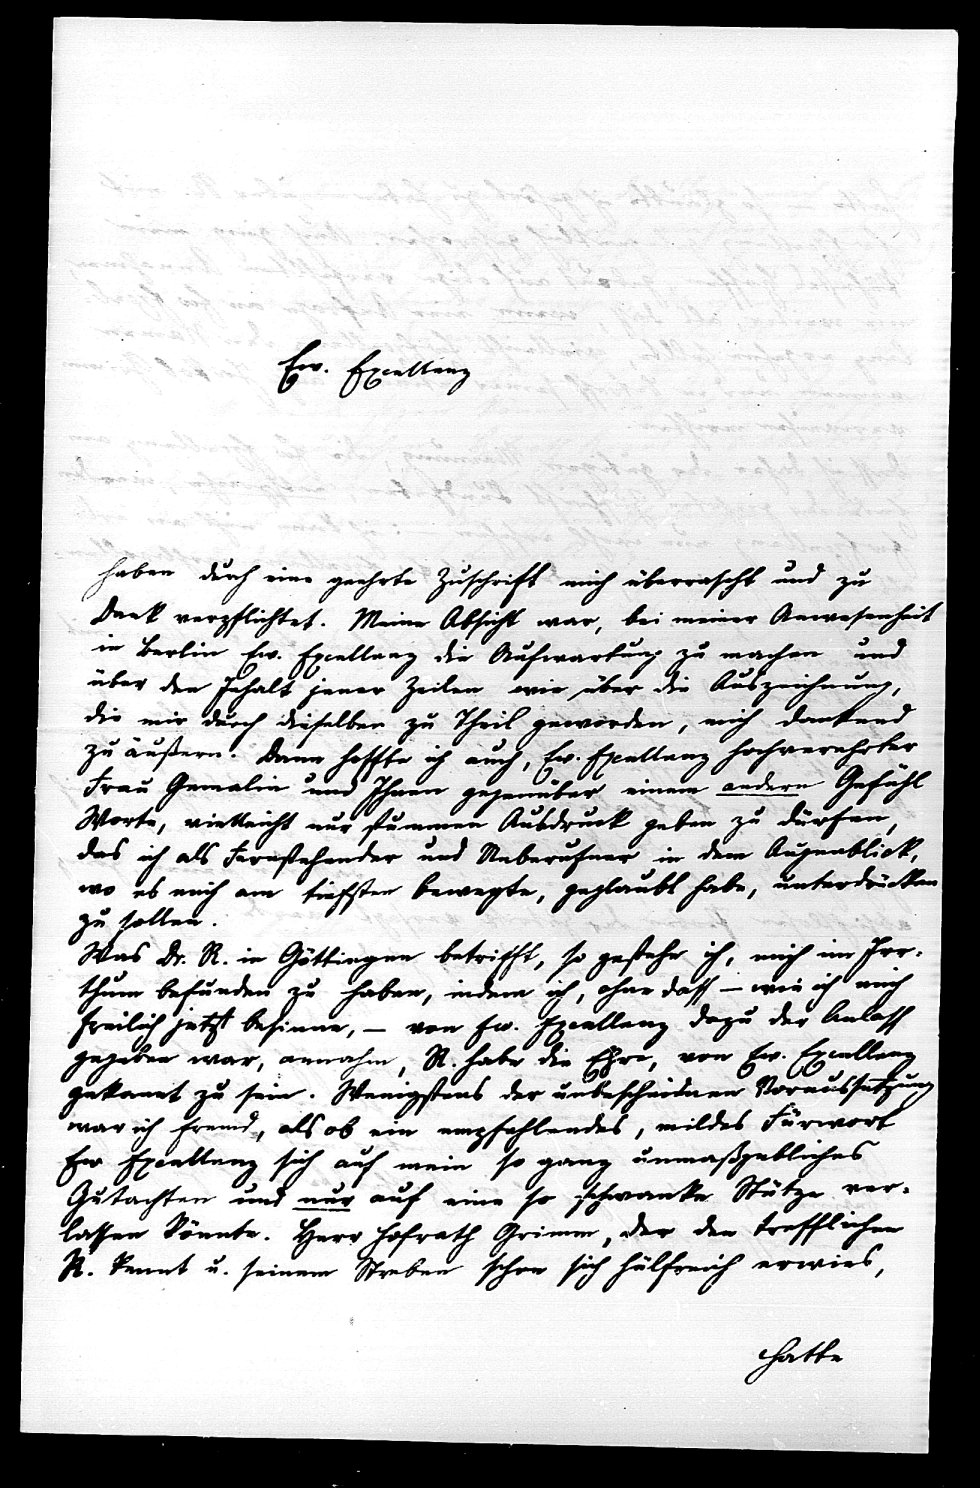 Ew. Excellenz
haben durch eine geehrte Zuschrift mich überrascht und zu
Dank verpflichtet. Meine Absicht war, bei meiner Anwesenheit
in Berlin Ew. Excellenz die Aufwartung zu machen und
über den Inhalt jener Zeilen wie über die Auszeichnung,
die mir durch dieselben zu Theil geworden, mich dankend
zu äußern. Dann hoffte ich auch, Ew. Excellenz hochverehrter
Frau Gemalin und Ihnen gegenüber einem andern Gefühl
Worte, vielleicht nur stummen Ausdruck geben zu dürfen,
das ich als Fernstehender und Unberufner in dem Augenblick,
wo es mich am tiefsten bewegte, geglaubt habe, unterdrücken
zu sollen.
Was Dr. R. in Göttingen betrifft, so gestehe ich, mich im Irr-
thum befunden zu haben, indem ich, ohne dass – wie ich mich
freilich jetzt besinne, – von Ew. Excellenz dazu der Anlass
gegeben war, annahm, R. habe die Ehre, von Ew. Excellenz
gekannt zu sein. Wenigstens der unbescheidnen Voraussetzung
war ich fremd, als ob ein empfehlendes, mildes Fürwort
Ew Excellenz sich auf mein so ganz unmaßgebliches
Gutachten und nur auf eine so schwanke Stütze ver-
lassen könnte. Herr Hofrath Grimm, der den trefflichen
R. kennt u. seinem Streben schon sich hülfreich erwies,
hatte